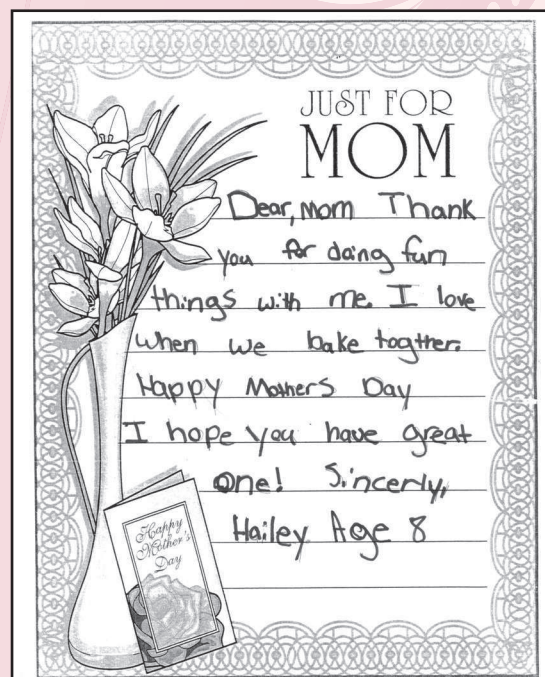 JUST FOR
MOM
Dear, mom Thank
you for doing fun
things with me. I love
when we bake togther.
Happy Mothers Day
I hope you have great
one! Sincerly,
Hailey Age 8
Happy
Mother's
Day